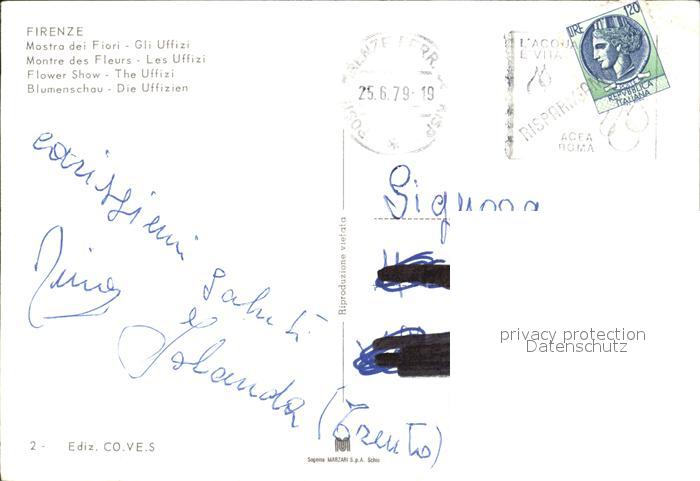 FIRENZE
Mostra dei Fiori - Gli Uffizi
Montre des Fleurs - Les Uffizi
Flower Show - The Uffizi
Blumenschau - Die Uffizien
25.6.79-19
L'ACQUA
È VITA
RISPARMIA
ACEA
ROMA
LIRE 120
REPVBBLICA
ITALIANA
carissimi
saluti
Nino
e
Jolanda
(Trento)
Signora
Riproduzione vietata
privacy protection
Datenschutz
2 - Ediz. CO.VE.S
Sagoma MARZARI S.p.A. Schio